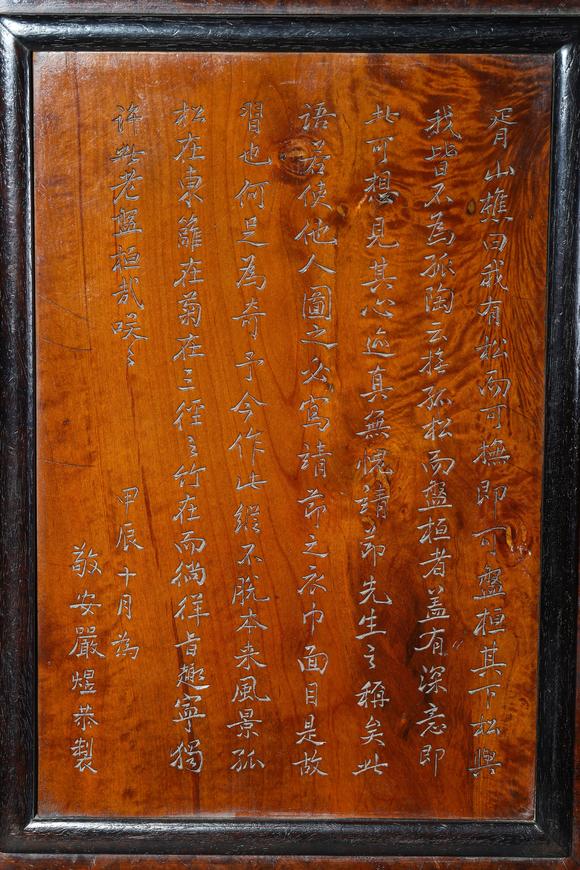 胥山樵曰我有松而可撫即可盤桓其下松與
我皆不為孤陶云撫孤松而盤桓者蓋有深意即
此可想見其心迹真無愧靖節先生之稱矣此
語若使他人圖之必寫靖節之衣巾面目是故
習也何足為奇予今作此繪不脫本来風景孤
松在東籬在菊在三徑之竹在而徜徉旨趣寧獨
許此老盤桓哉咲〻
甲辰十月為
敬安嚴煜恭製